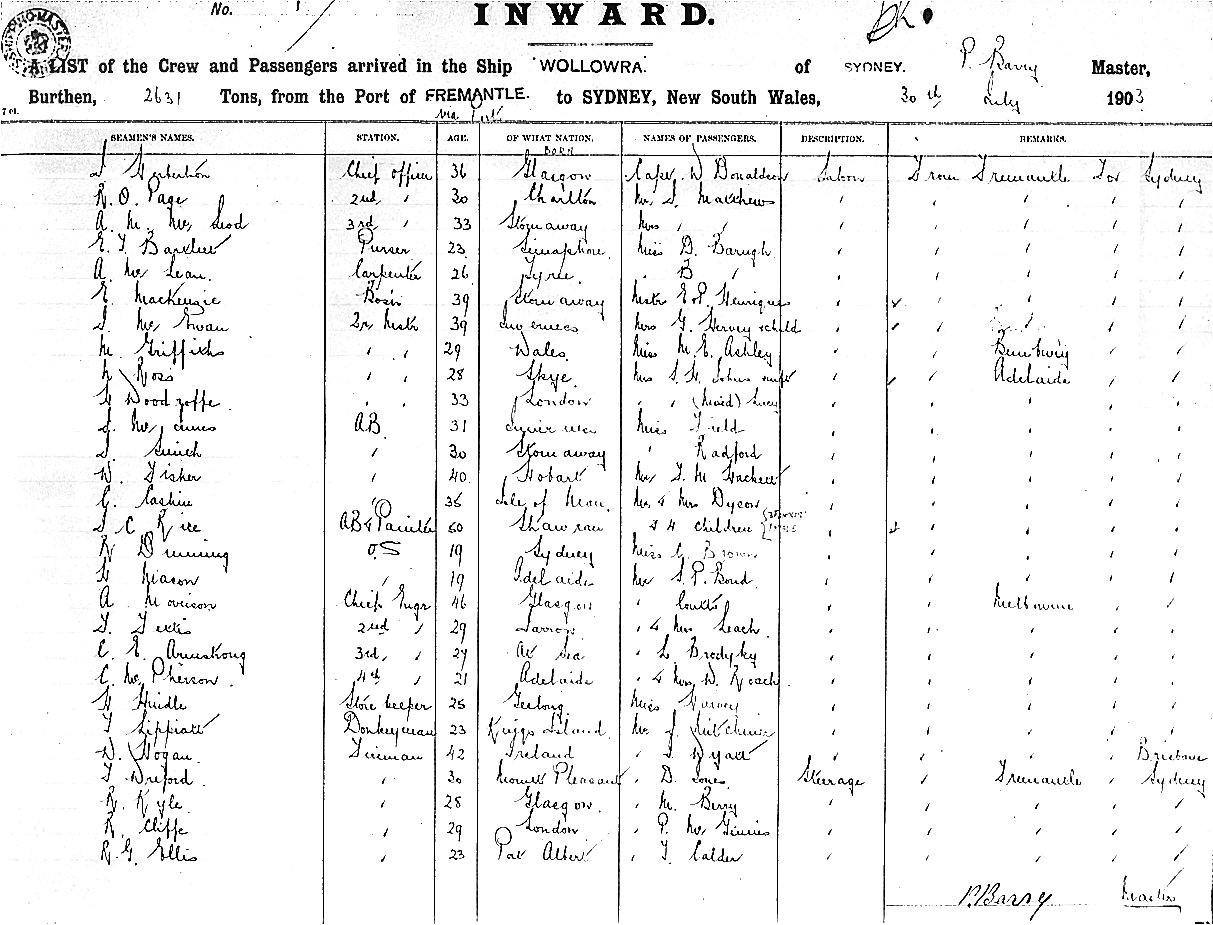 No. 1
INWARD.
A LIST of the Crew and Passengers arrived in the Ship WOLLOWRA. of SYDNEY. P. Barry Master,
Burthen, 2631 Tons, from the Port of FREMANTLE. to SYDNEY, New South Wales, 30th July 1903
via Ports
SEAMEN'S NAMES. STATION. AGE. OF WHAT NATION. NAMES OF PASSENGERS. DESCRIPTION. REMARKS.
BORN
Chief Officer 36 Glasgow Capt. W Donaldson Saloon From Fremantle For Sydney
R. O. Page 2nd " 30 Charlton Mr. S. Matthews " " " " "
A. M. Mc Leod 3rd " 33 Stornaway Mrs " " " " " " "
E. T. Bartlett Purser 23 Semaphore Miss D. Barugh " " " " "
A. Mc Lean. Carpenter 26 Tyree " B " " " " " "
E. Mackenzie Bosn 39 Stornaway Mstr E. P. Henriques " " " " "
Mc Ewan 39 Inverness Mrs G. Hervey & child " " " "
M. Griffiths " " 29 Wales. Miss M. E. Ashley " " Bunbury " "
Ross " " 28 Skye. Mrs " " Adelaide " "
Woodroffe " " 33 London " (Maid) Lucy " " " " "
Mc Innes AB 31 Inverness Miss Field " " " " "
" 30 Stornaway " Radford " " " " "
W. Fisher " 40 Hobart Mr " " " " "
Cashin " 35 Isle of Man. Mr & Mrs Dyson " " " " "
C Rice AB & Painter 50 & 4 children " " " " "
Dunning O.S 19 Sydney Miss Brown " " " " "
Mason " 19 Adelaide Mr S. P. Bond " " " " "
A. Morrison Chief Engr 46 Glasgow " Coutts " " Melbourne " "
2nd " 29 " & Mrs Leach " " " " "
C. E. Armstrong 3rd, " 27 At Sea " L Brodyky " " " " "
C. Mc Pherson 4th " 21 Adelaide " & Mrs W. Roach " " " " "
Hindle Storekeeper 25 Geelong Miss " " " " "
T Lippiatt Donkeyman 23 Kings Island Mr. J. " " " " "
W. Hogan. Fireman 42 Ireland " Wyatt " " " " Brisbane
" 30 Mount Pleasant " D. Jones Steerage " Fremantle " Sydney
R. Kyle " 28 Glasgow. " M. Berry " " " " "
R. Cliffe " 29 London " P. Mc Ginnis " " " " "
R. G. Ellis " 23 Port Albert " T. Calder " " " " "
P. Barry Master